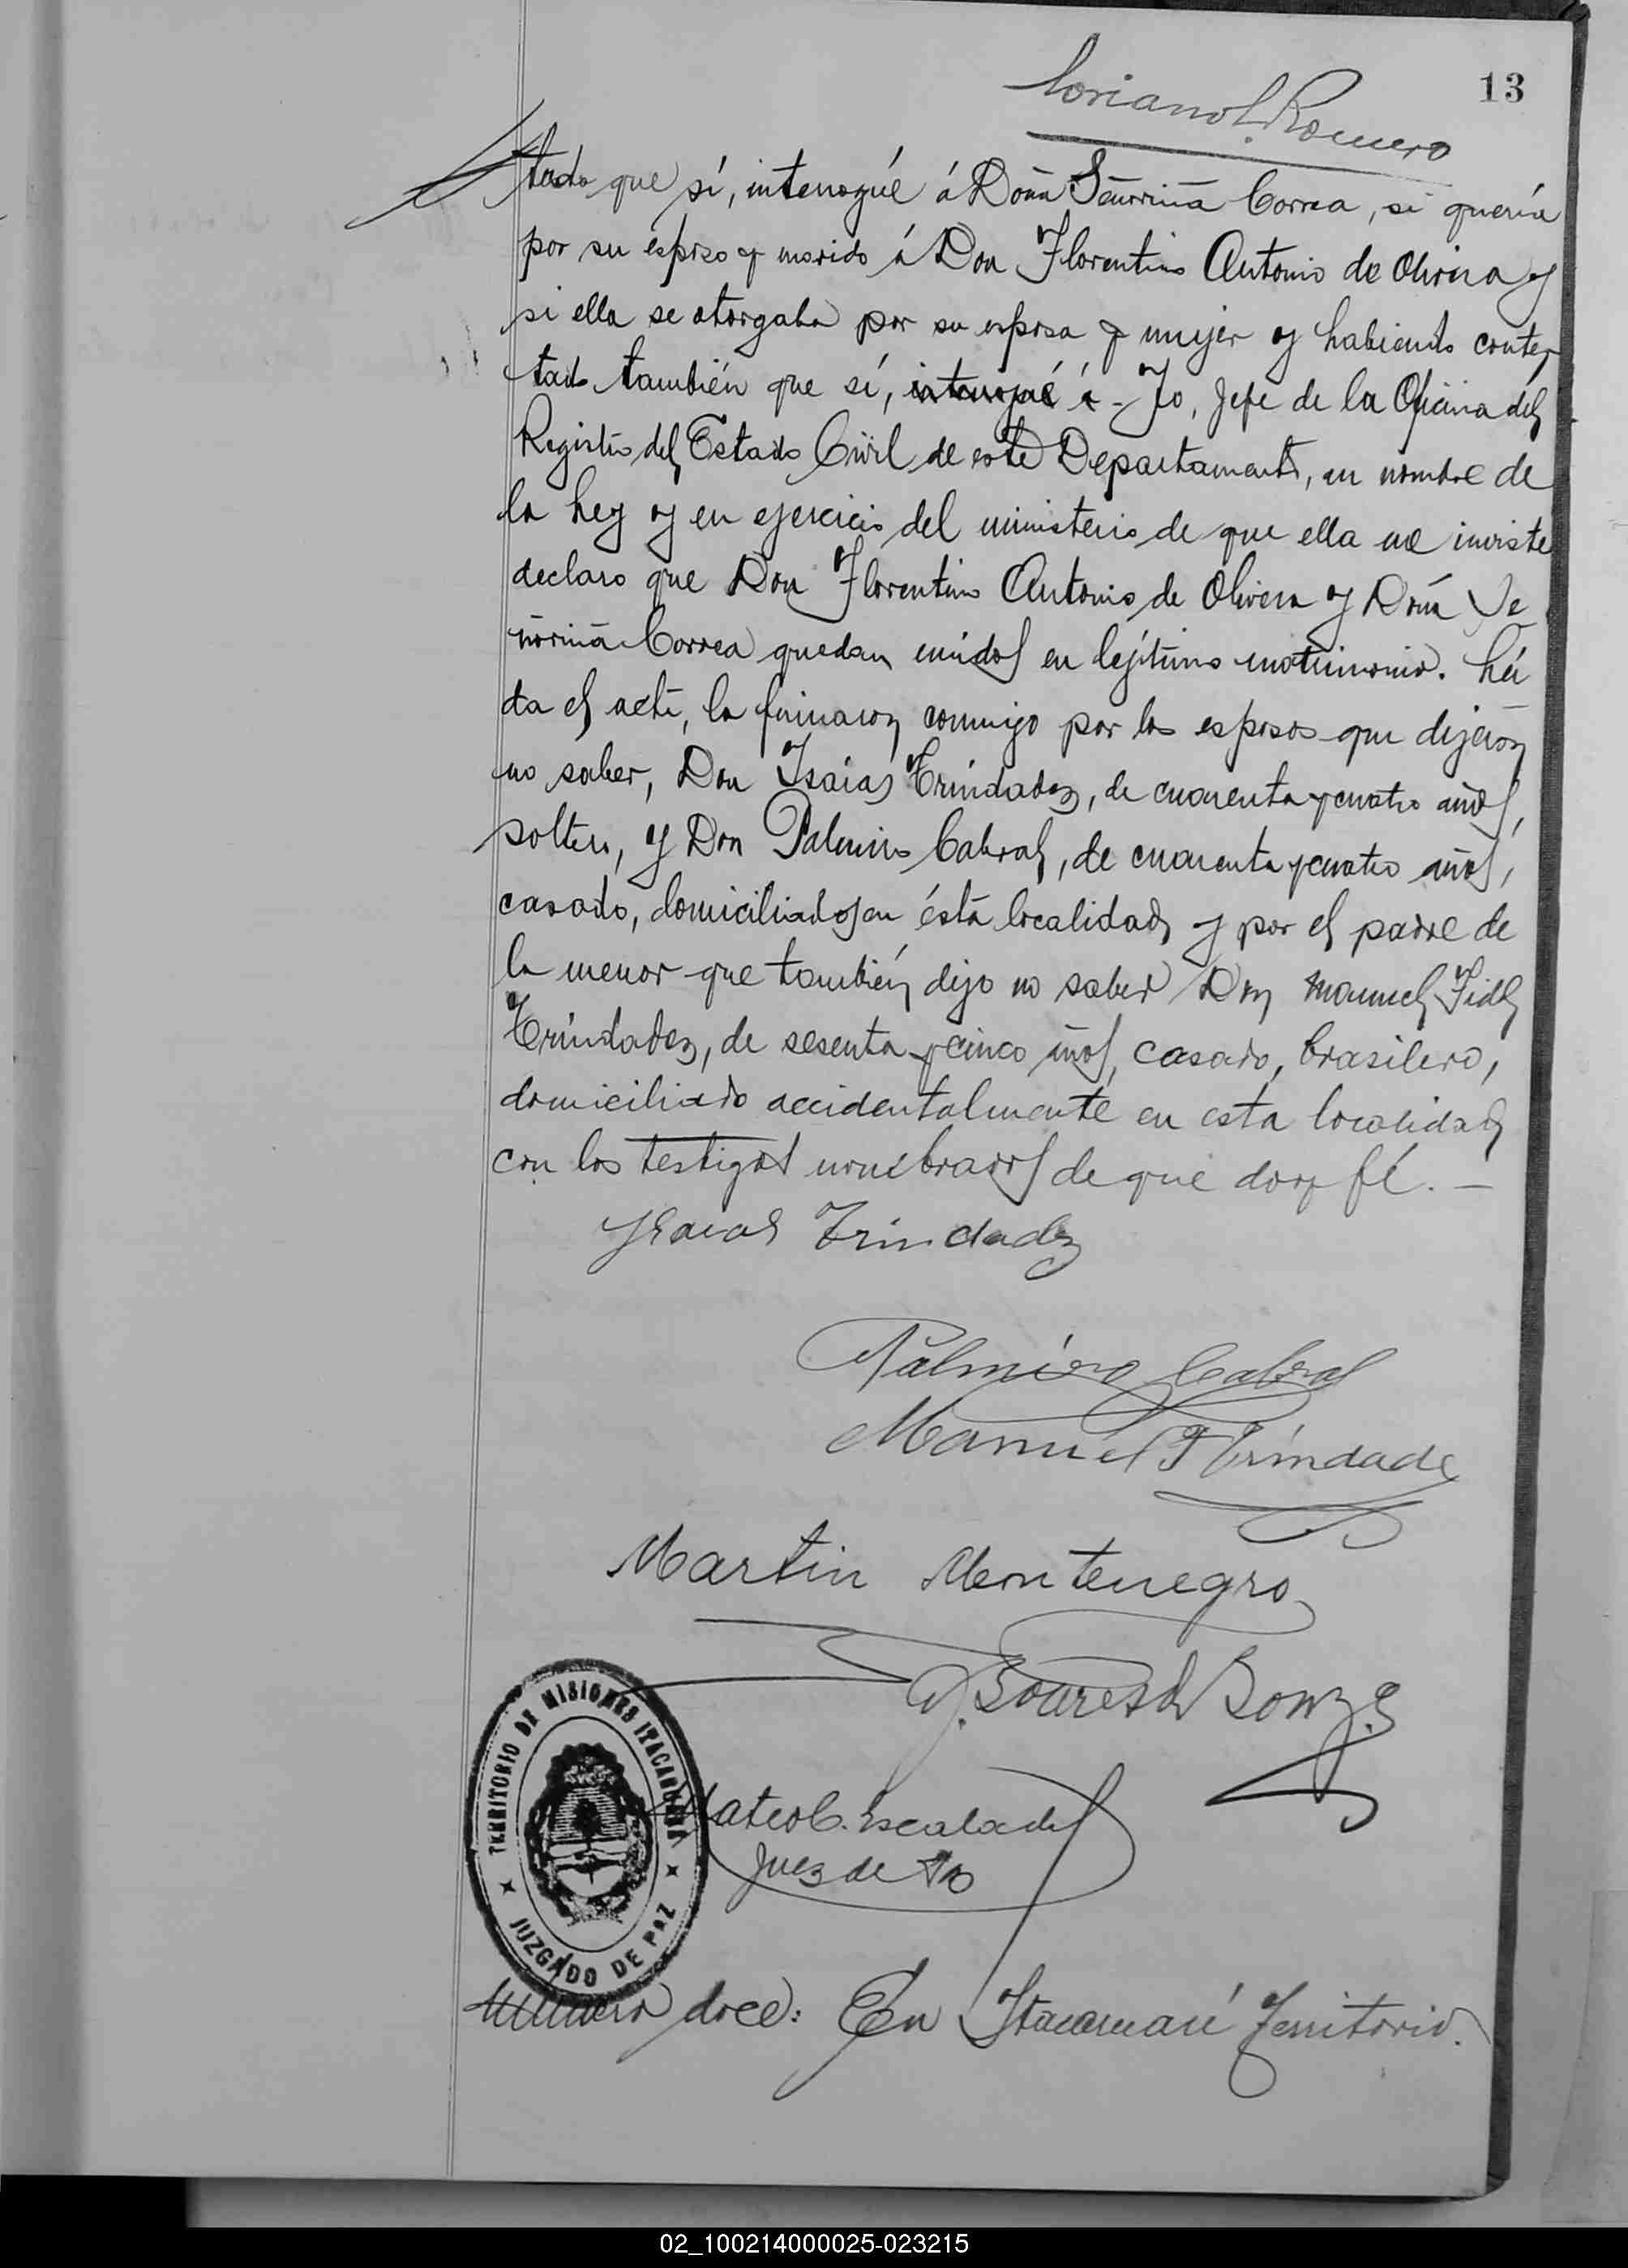 13
Loriano L. Romero
tado que sí, interrogué á Doña Señorina Correa, si quería
por su esposo y marido á Don Florentino Antonio de Olivera y
si ella se otorgaba por su esposa y mujer y habiendo contes
tado también que sí, interrogué á - Yo, Jefe de la Oficina del
Registro del Estado Civil de este Departamento, en nombre de
la Ley y en ejercicio del ministerio de que ella me inviste
declaro que Don Florentino Antonio de Olivera y Doña Se
ñorina Correa quedan unidos en lejítimo matrimonio. Leí
da el acta, la firmaron conmigo por los esposos que dijeron
no saber, Don Isaias Trindadez, de cuarenta y cuatro años,
soltero, y Don Palmiro Cabral, de cuarenta y cuatro años,
casado, domiciliados en ésta localidad y por el padre de
la menor que también dijo no saber Don Manuel Fidel
Trindadez, de sesenta y cinco años, casado, brasilero,
domiciliado accidentalmente en esta localidad
con los testigos nombrados de que doy fé. -
Ysaias Trindadez
Palmiro Cabral
Manuel F Trindade
Martin Montenegro
Soares de Souza
TERRITORIO DE MISIONES ITACARUARÉ
JUZGADO DE PAZ
Mateo C. Escalada
Juez de Paz
Número doce: En Itacaruaré Territorio.
02_100214000025-023215